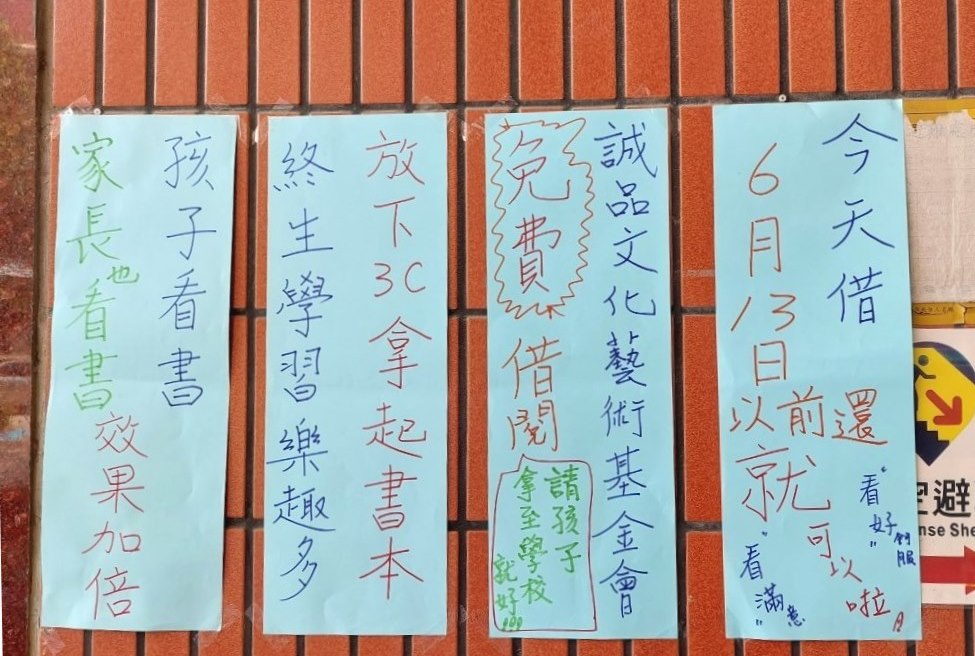 今天借
6月13日
以前還
就可以啦
"看好"
"看滿意"
誠品文化藝術基金會
免費借閱
請孩子
拿至學校
就好!!!
放下3C拿起書本
終生學習樂趣多
孩子看書
家長也看書
效果加倍
避
nse She